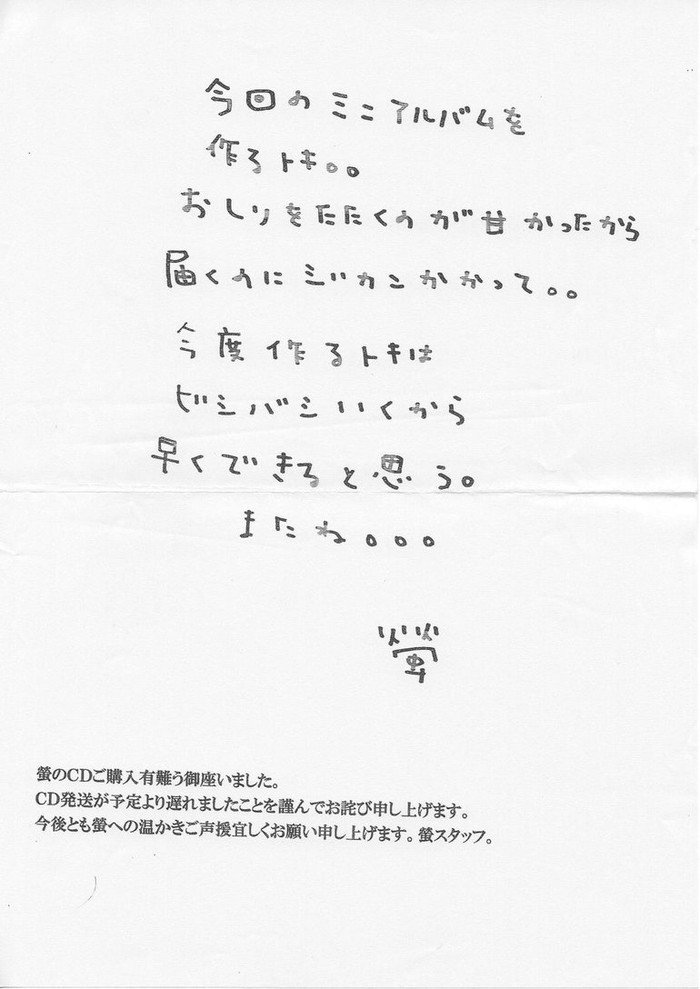 今回のミニアルバムを
作るトキ。。
おしりをたたくのが甘かったから
届くのにジカンかかって。。
今度作るトキは
ビシバシいくから
早くできると思う。
またね。。。
螢
螢のCDご購入有難う御座いました。
CD発送が予定より遅れましたことを謹んでお詫び申し上げます。
今後とも螢への温かきご声援宜しくお願い申し上げます。螢スタッフ。